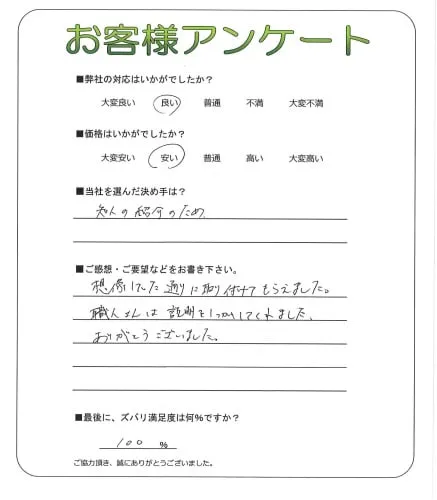 お客様アンケート
■弊社の対応はいかがでしたか？
大変良い 良い 普通 不満 大変不満
■価格はいかがでしたか？
大変安い 安い 普通 高い 大変高い
■当社を選んだ決め手は？
知人の紹介のため
■ご感想・ご要望などをお書き下さい。
想像していた通りに取り付けてもらえました。
職人さんは説明をしっかりしてくれました。
ありがとうございました。
■最後に、ズバリ満足度は何％ですか？
100 %
ご協力頂き、誠にありがとうございました。